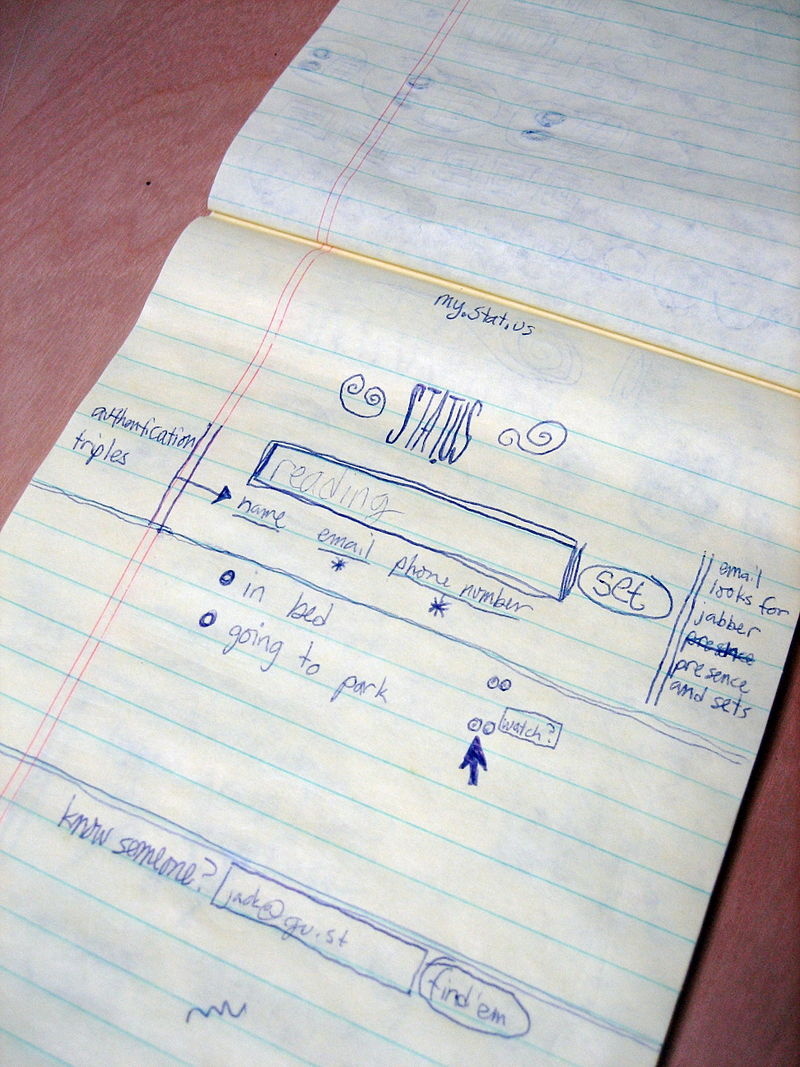 my.stat.us
STAT.US
authentication
triples
reading
name
email
phone number
*
*
set
email
looks for
jabber
presence
presence
and sets
in bed
going to park
watch?
know someone?
jack@gu.st
find 'em